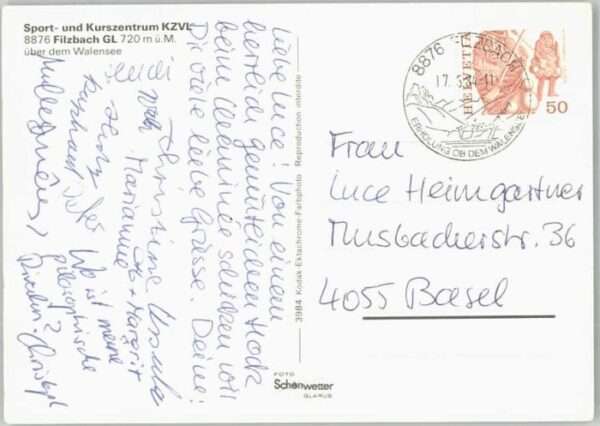 Sport- und Kurszentrum KZVL
8876 Filzbach GL 720 m ü.M.
über dem Walensee
Liebe Luce! Von einem
herrlich gemütlichen Hock
beim Cheminée schicken wir
Dir viele liebe Grüsse. Deine:
Christine Ursula
Marianne
Margrit
Heidi
Wo ist meine
philosophische
Christoph
3984 Kodak-Ektachrome-Farbphoto Reproduction interdite
FOTO
Schönwetter
GLARUS
8876 FILZBACH
17.
ERHOLUNG OB DEM WALENSEE
HELVETIA
50
Frau
Luce Heimgartner
Mus­bacherstr. 36
4055 Basel